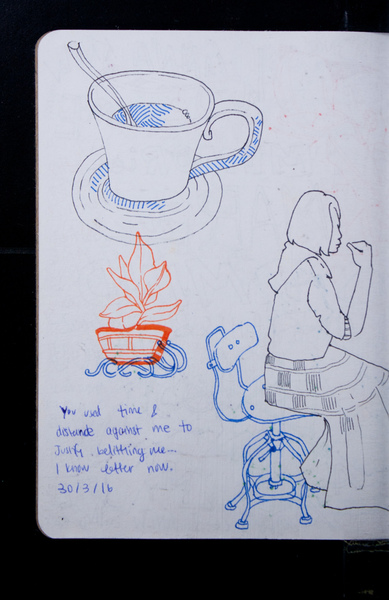 You used time &
distance against me to
Justify belittling me...
I know better now.
30/3/16